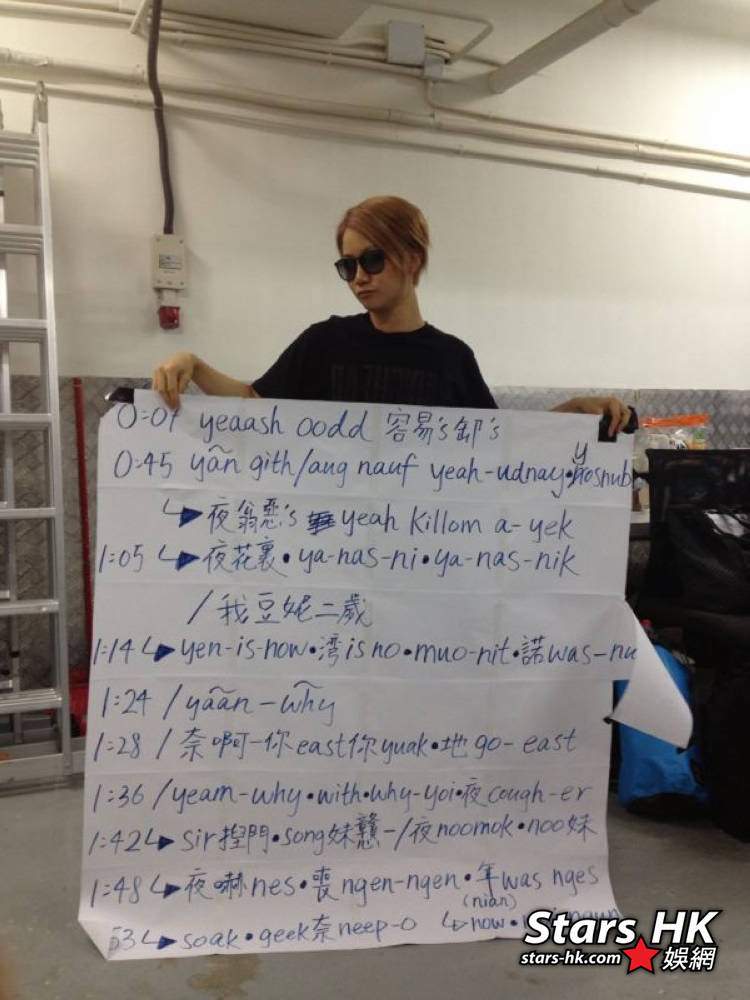 0:07 yeaash oodd 容易's卸's
y
0:45 yãn gith/aug nauf yeah-udnay•nosnub
↳夜翁惡's yeah killom a-yek
1:05 ↳夜花裏•ya-nas-ni•ya-nas-nik
/我豆妮二歲
1:14↳yen-is-now•湾is no•muo-nit•諾was-nu
1:24 /yããn-why
1:28 / 奈啊-你east你yuak•地go-east
1:36 /yeam-why•with•why-yoi•夜cough-er
1:42↳sir揑門•song妹戇-/夜noomok•noo妹
1:48↳夜嚇nes•喪ngen-ngen•年was nges
(nian)
53↳soak•geek奈neep-o ↳now•
Stars HK
stars-hk.com 娛網